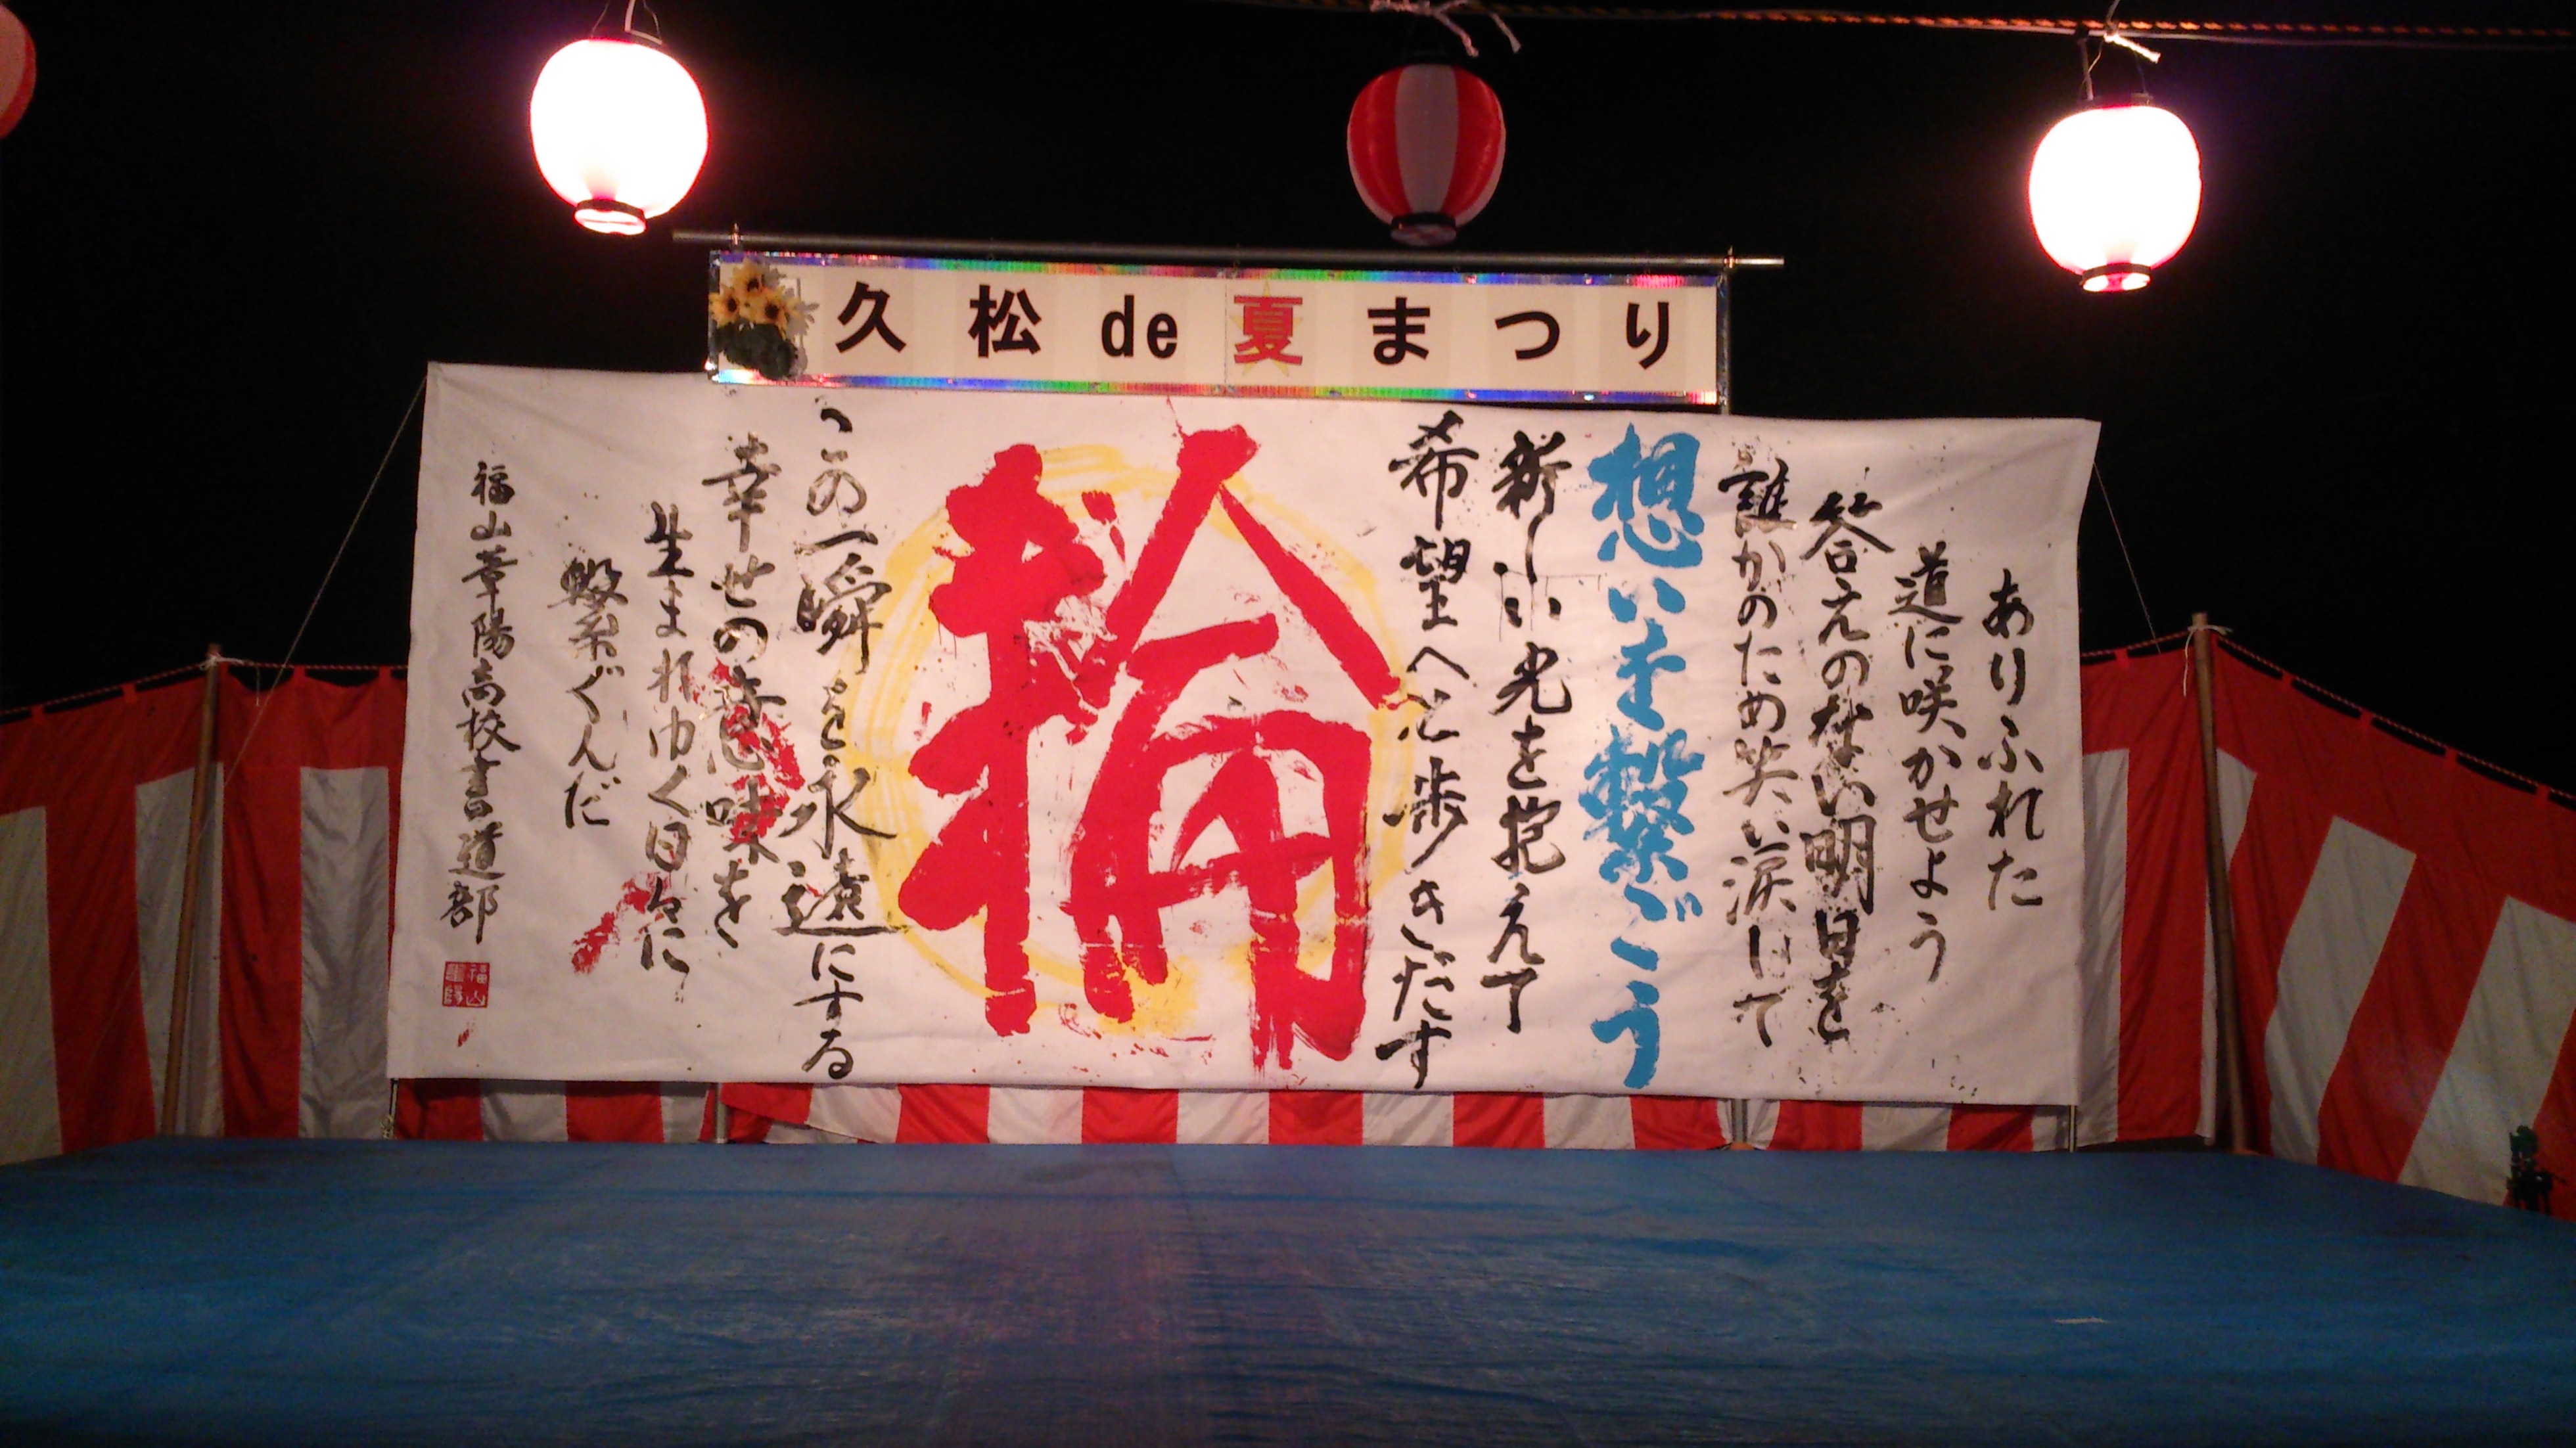 久松de夏まつり
ありふれた
道に咲かせよう
答えのない明日を
誰かのため笑い涙して
想いを繋ごう
新しい光を抱えて
希望へと歩きだす
輪
この一瞬を永遠にする
幸せの意味を
生まれゆく日々に
繋ぐんだ
福山葦陽高校書道部